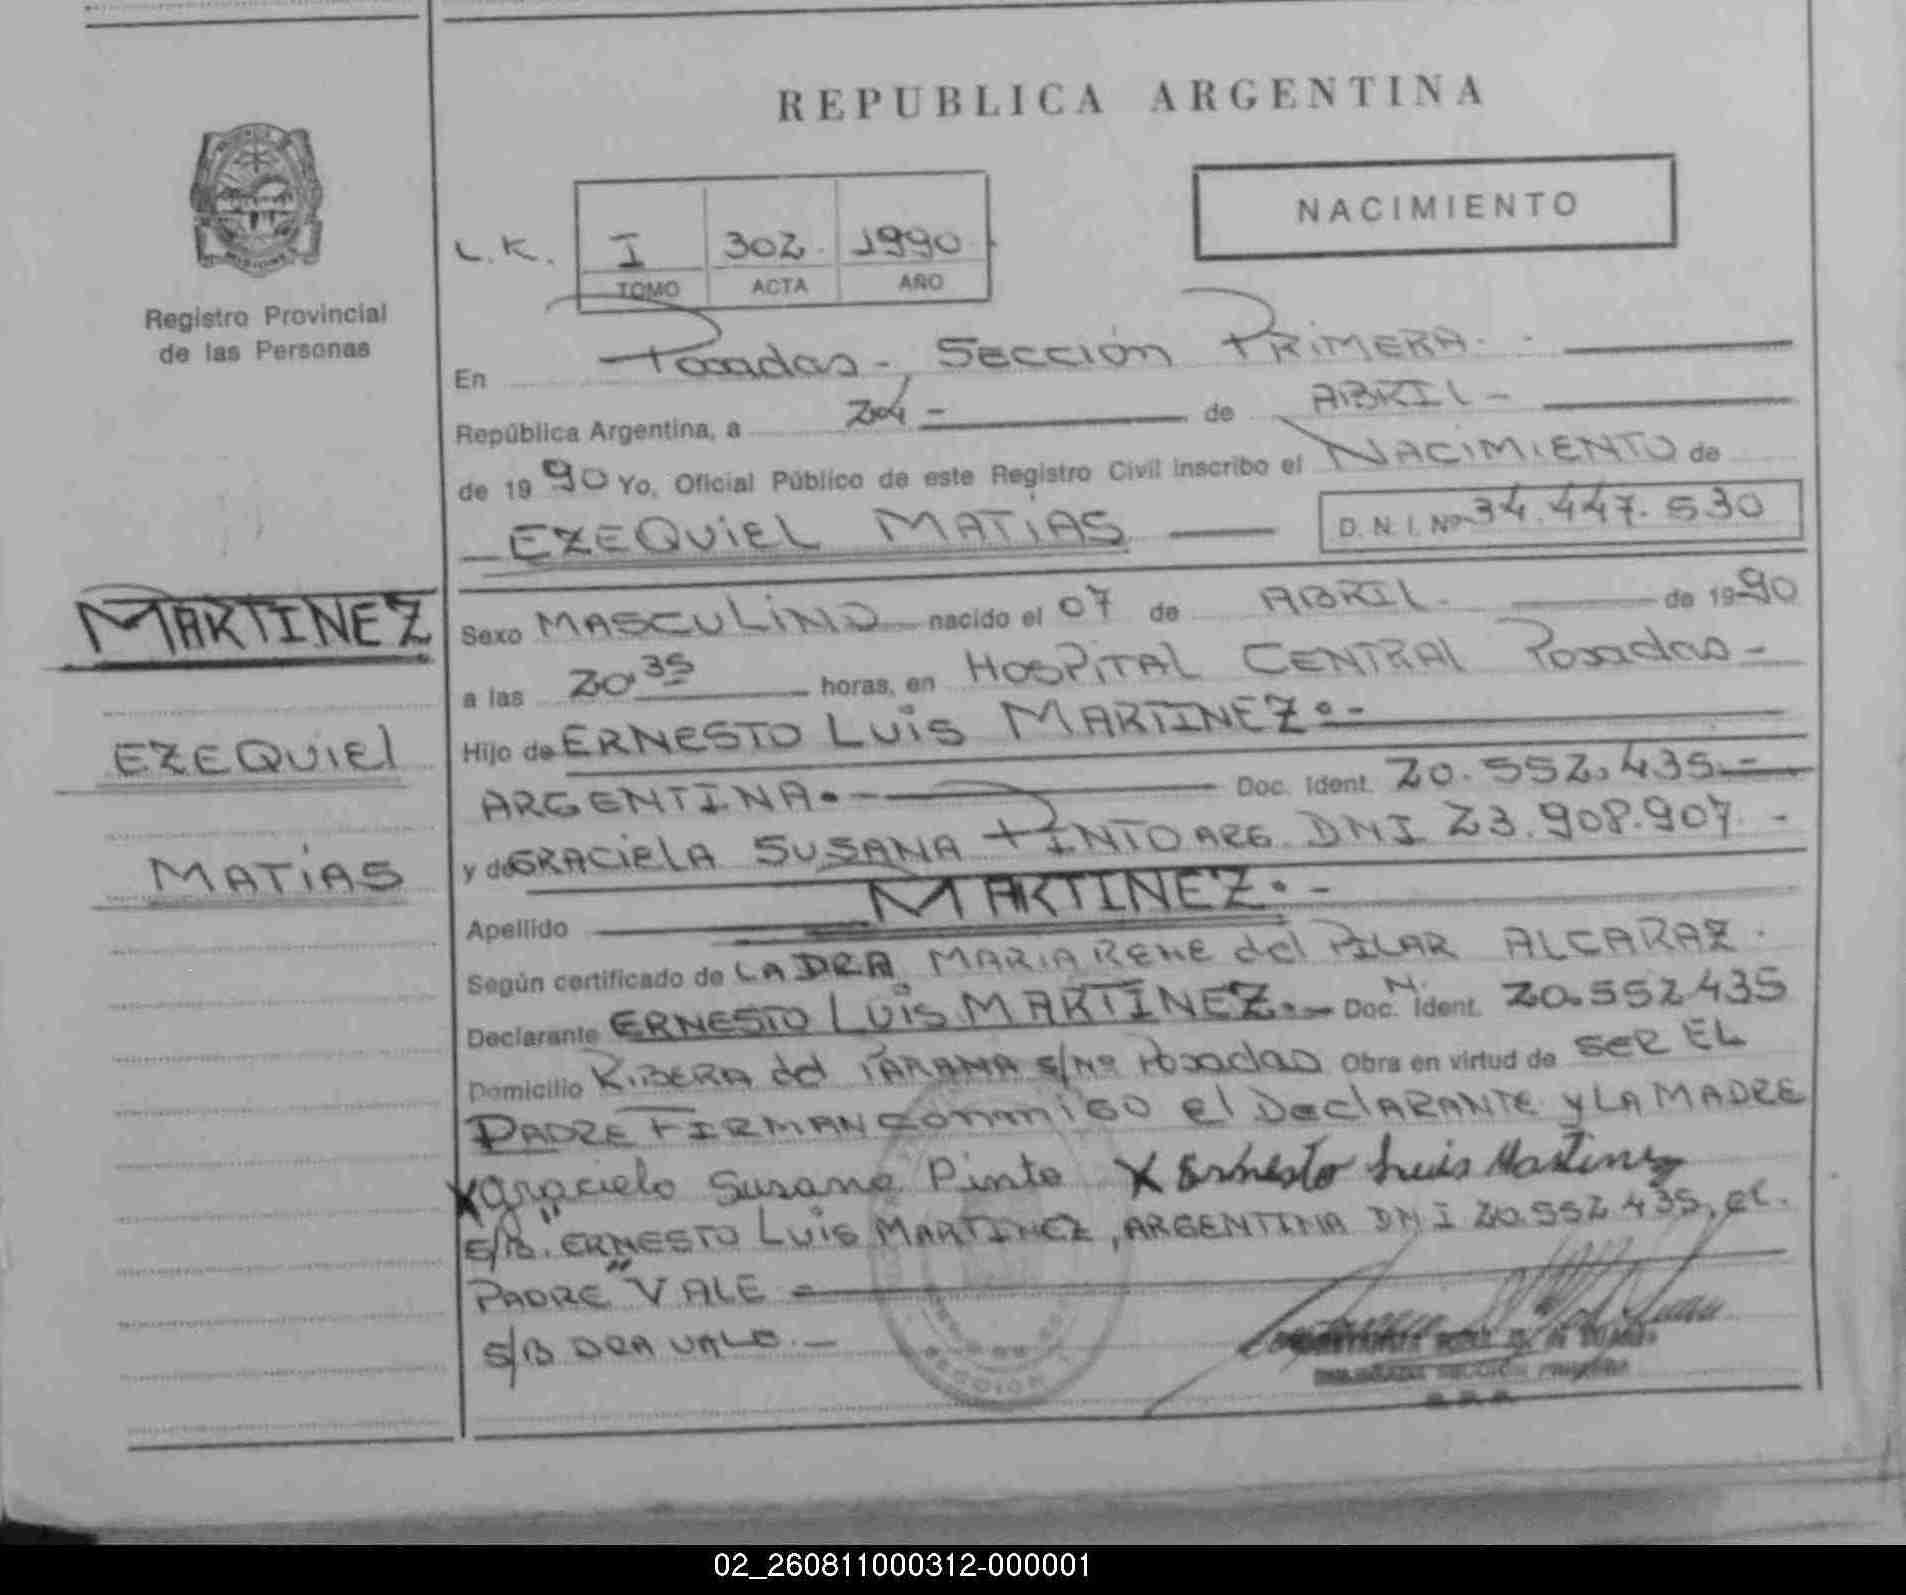 REPUBLICA ARGENTINA
NACIMIENTO
L.K. I 302 1990
TOMO ACTA AÑO
Registro Provincial
de las Personas
En Posadas - Sección PRIMERA
República Argentina, a de ABRIL -
de 1990 Yo, Oficial Público de este Registro Civil inscribo el NACIMIENTO de
EZEQUIEL MATIAS D.N.I. Nº 34.447.530
MARTINEZ
EZEQUIEL
MATIAS
Sexo MASCULINO nacido el 07 de ABRIL de 1990
a las 20.35 horas, en HOSPITAL CENTRAL Posadas -
Hijo de ERNESTO LUIS MARTINEZ.-
ARGENTINA.- Doc. Ident. 20.552.435.-
y de GRACIELA SUSANA PINTO ARG. DNI 23.908.907 -
Apellido MARTINEZ.-
Según certificado de LA DRA MARIA RENE del PILAR ALCARAZ.
Declarante ERNESTO LUIS MARTINEZ.- Doc. N. Ident. 20.552435
Domicilio RIBERA del PARANA s/Nº Posadas Obra en virtud de SER EL
PADRE FIRMAN conmigo el DeclARANTE y LA MADRE
X Graciela Susana Pinto X Ernesto Luis Martinez
S/B. "ERNESTO LUIS MARTINEZ, ARGENTINA DNI 20.552.435, el.
PADRE" VALE
S/B DRA VALE.-
02_260811000312-000001